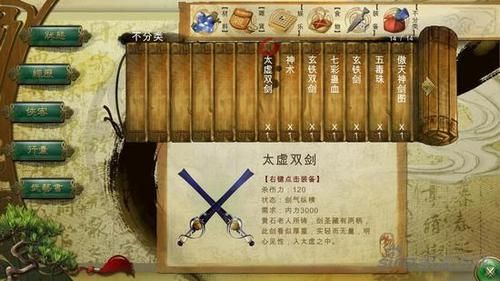 不分类
14 / 14
太虚双剑 X 1
神术 X 1
玄铁双剑 X 1
七彩蛊血 X 1
玄铁剑 X 1
五毒珠 X 1
傲天神剑图 X 1
太虚双剑
【右键点击装备】
杀伤力：120
状态：剑气纵横
需求：内力3000
黄石老人所铸，剑圣藏有两柄，
此剑看似厚重，实轻而无量，明
心见性，入太虚之中。
状态
行囊